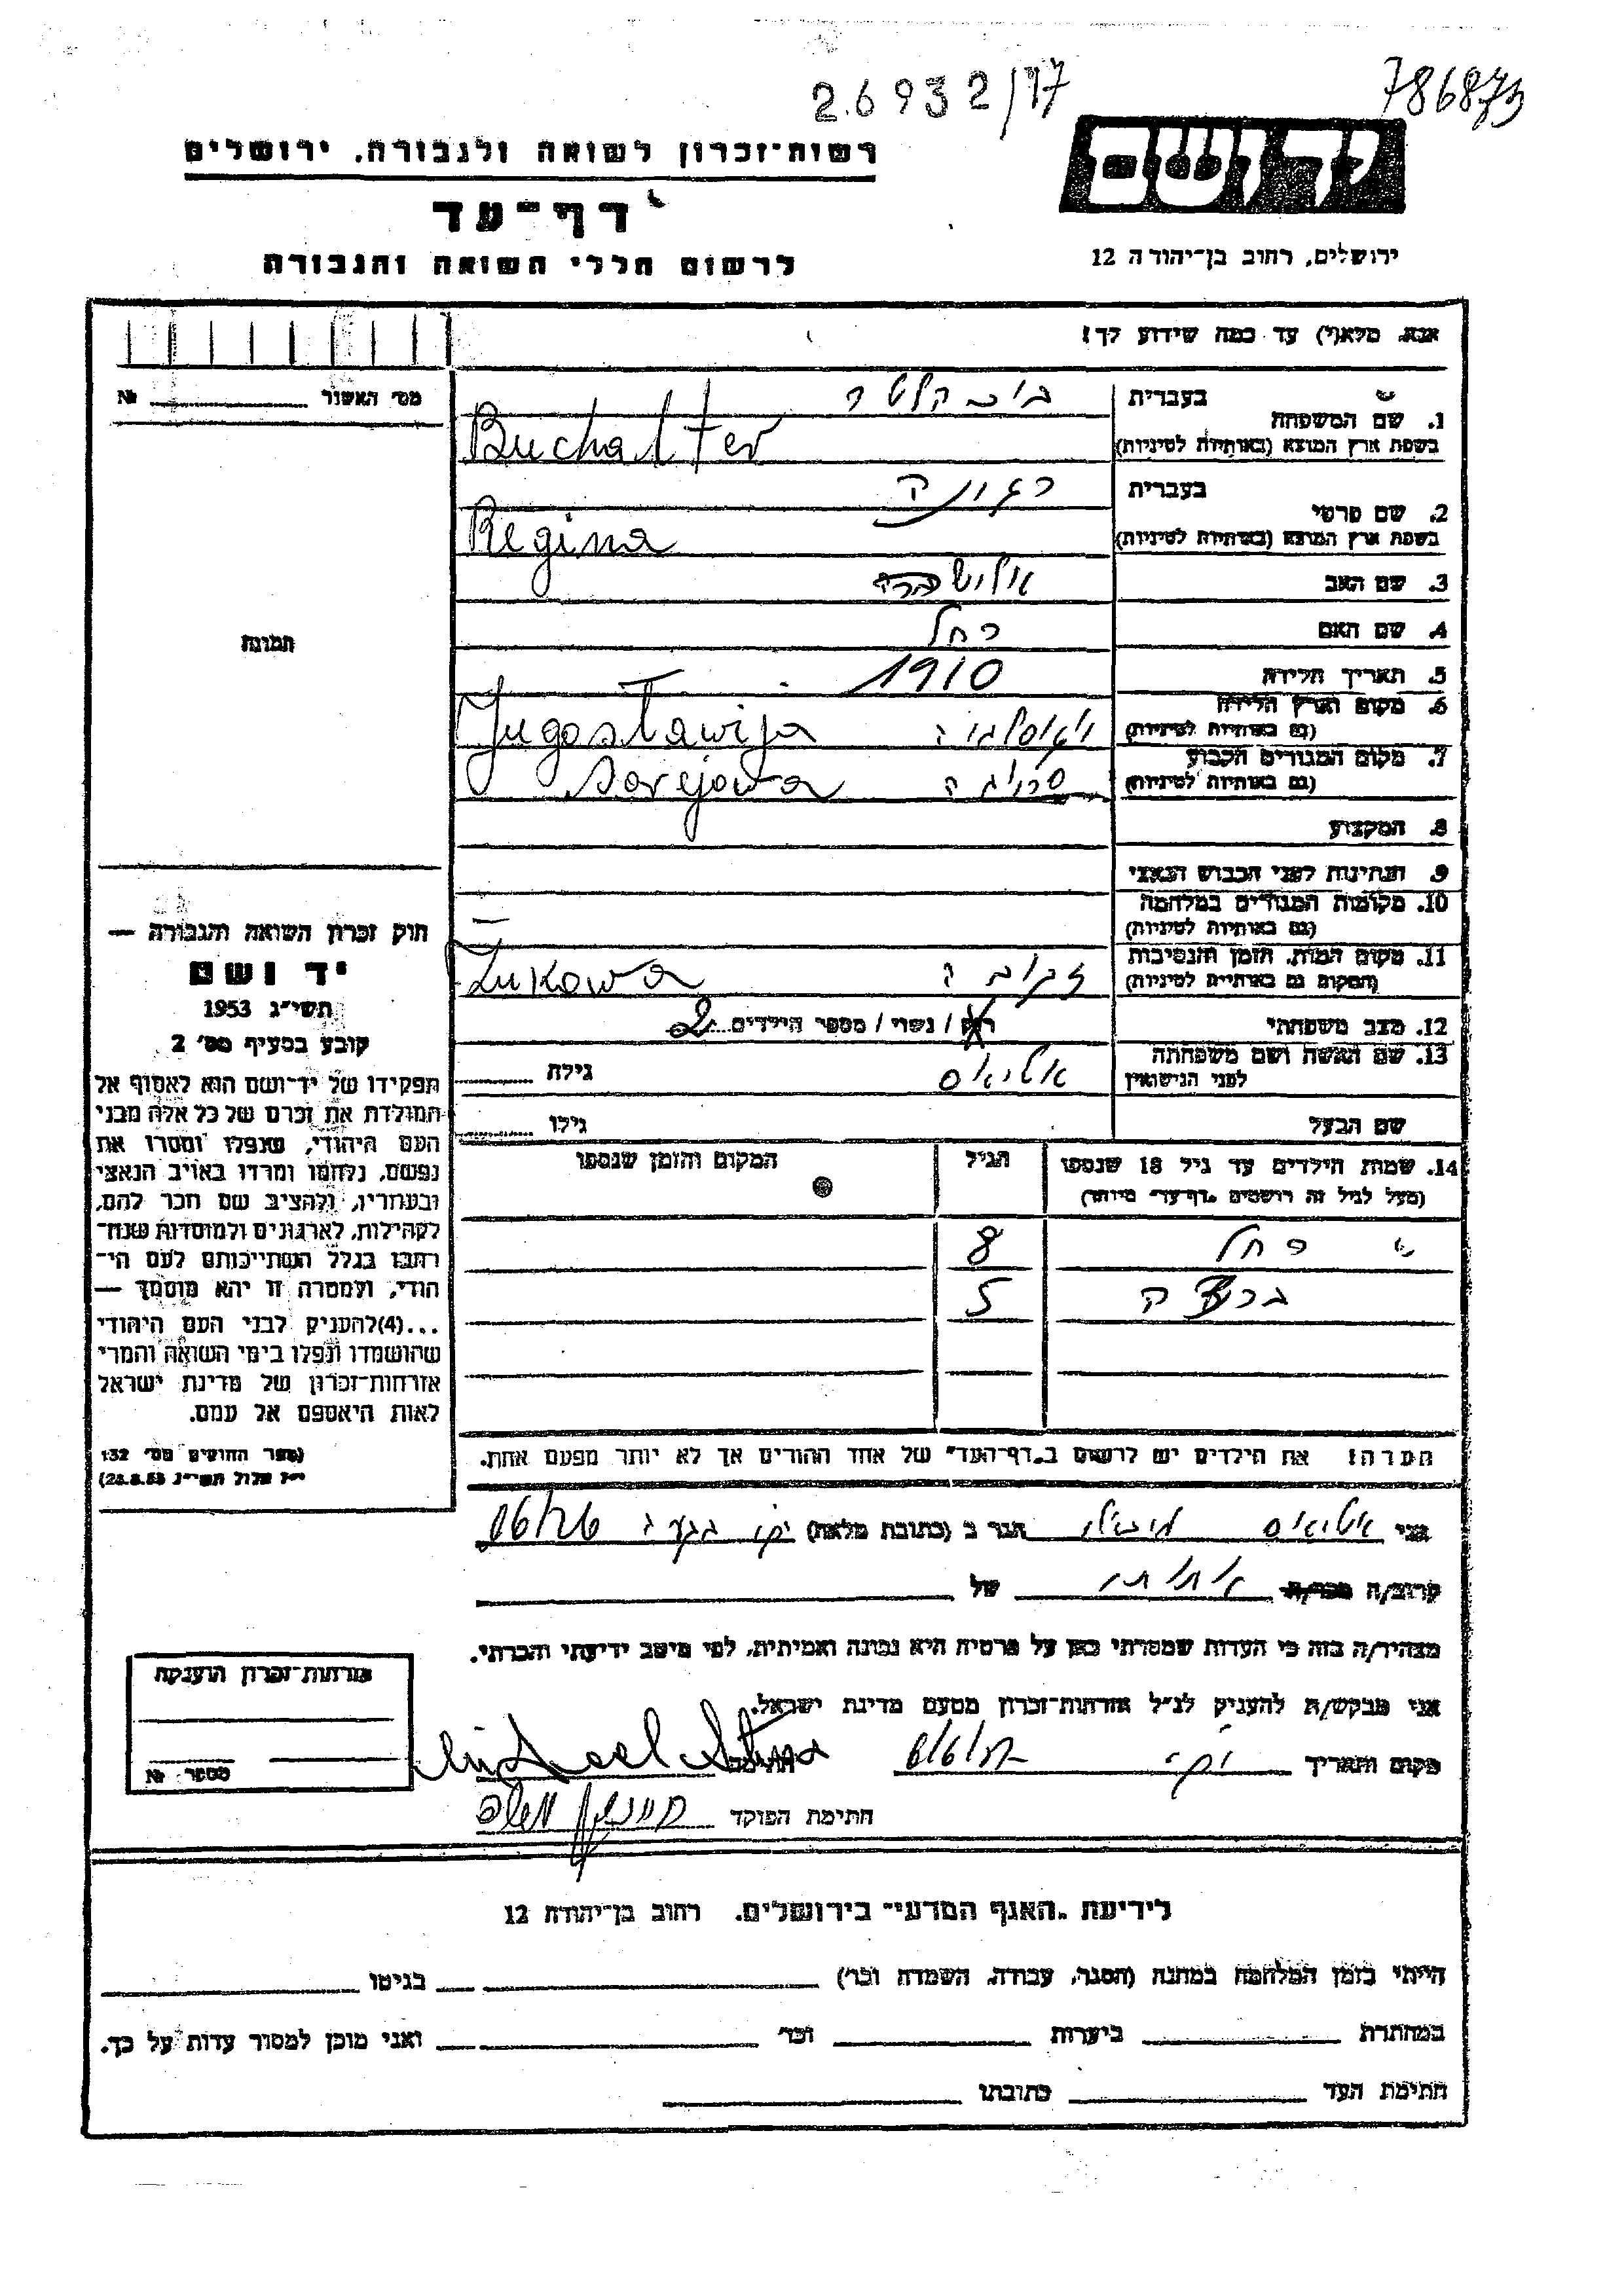 26932/17
786873
יד ושם
רשות-זכרון לשואה ולגבורה, ירושלים
דף-עד
ירושלים, רחוב בן-יהודה 12
לרשום חללי השואה והגבורה
אנא, מלא(י) עד כמה שידוע לך!
מס׳ האשור № ______
תמונה
1. שם המשפחה
בעברית
בוכהלטר
בשפת ארץ המוצא (באותיות לטיניות)
Buchalter
2. שם פרטי
בעברית
רגינה
בשפת ארץ המוצא (באותיות לטיניות)
Regina
3. שם האב
4. שם האם רחל
5. תאריך הלידה 1910
6. מקום וארץ הלידה
(גם באותיות לטיניות)
Jugoslawija
7. מקום המגורים הקבוע
(גם באותיות לטיניות)
Sarejowa
8. המקצוע
9. הנתינות לפני הכבוש הנאצי
10. מקומות המגורים במלחמה
(גם באותיות לטיניות)
—
11. מקום המות, הזמן והנסיבות
(המקום גם באותיות לטיניות)
Zukowa
12. מצב משפחתי רווק / נשוי / מספר הילדים 2
13. שם האשה ושם משפחתה
לפני הנישואין
אטיאס גילה
שם הבעל גילו
14. שמות הילדים עד גיל 18 שנספו
(מעל לגיל זה רושמים "דף-עד" מיוחד)
הגיל
המקום והזמן שנספו
רחל 8
5
הערה: את הילדים יש לרשום ב"דף-העד" של אחד ההורים אך לא יותר מפעם אחת.
חוק זכרון השואה והגבורה —
יד ושם
תשי״ג 1953
קובע בסעיף מס׳ 2
תפקידו של יד-ושם הוא לאסוף אל
המולדת את זכרם של כל אלה מבני
העם היהודי, שנפלו ומסרו את
נפשם, נלחמו ומרדו באויב הנאצי
ובעוזריו, ולהציב שם וזכר להם,
לקהילות, לארגונים ולמוסדות שנח-
רבו בגלל השתייכותם לעם הי-
הודי, ולמטרה זו יהא מוסמך —
...(4) להעניק לבני העם היהודי
שהושמדו ונפלו בימי השואה והמרי
אזרחות-זכרון של מדינת ישראל
לאות היאספם אל עמם.
(ספר החוקים מס׳ 132
י״ז אלול תשי״ג 28.8.53)
אני אטיאס הגר ב (כתובת מלאה)
קרוב/ה מכר/ה אחותי של
מצהיר/ה בזה כי העדות שמסרתי כאן על פרטיה היא נכונה ואמיתית, לפי מיטב ידיעתי והכרתי.
אני מבקש/ת להעניק לנ״ל אזרחות-זכרון מטעם מדינת ישראל.
מקום ותאריך חתימה
חתימת הפוקד
אזרחות-זכרון הוענקה
מספר №
לידיעת "האגף המדעי" בירושלים, רחוב בן-יהודה 12
הייתי בזמן המלחמה במחנה (הסגר, עבודה, השמדה וכו׳) בגיטו
במחתרת ביערות וכו׳ ואני מוכן למסור עדות על כך.
חתימת העד כתובתו